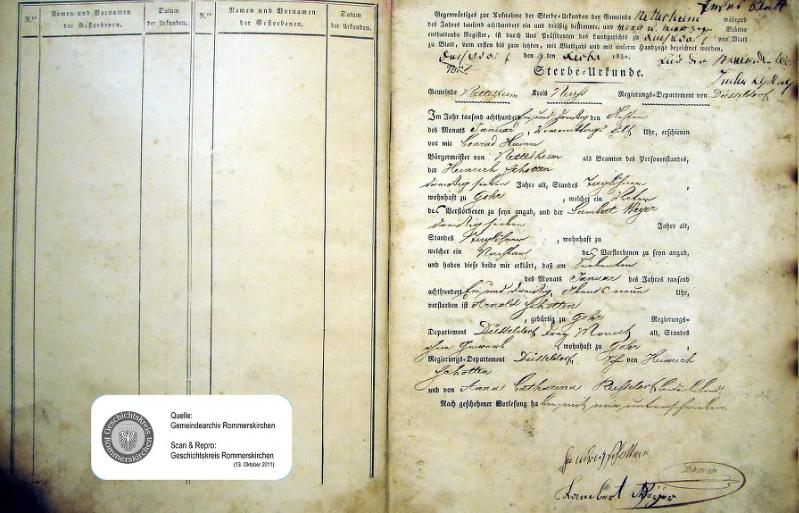 N.ro
Namen und Vornamen
der Gestorbenen.
Datum
der Urkunden.
N.ro
Namen und Vornamen
der Gestorbenen.
Datum
der Urkunden.
Quelle:
Gemeindearchiv Rommerskirchen
Scan & Repro:
Geschichtskreis Rommerskirchen
(13. Oktober 2011)
Geschichtskreis
Rommerskirchen
Gegenwärtiges zur Aufnahme der Sterbe-Urkunden der Gemeinde Nettesheim während
des Jahres tausend achthundert ein und dreißig bestimmte, und Blätter
enthaltende Register, ist durch Uns Präsidenten des Landgerichts zu Düsseldorf von Blatt
zu Blatt, vom ersten bis zum letzten, mit Blattzahl und mit unserer Handzuge bezeichnet worden.
Düsseldorf den 183
Sterbe-Urkunde.
Gemeinde Nettesheim Kreis Neuß Regierungs-Departement von Düsseldorf
Im Jahr tausend achthundert ein und dreißig den
des Monats Januar, Vormittags Elf Uhr, erschienen
vor mir Conrad Hamm
Bürgermeister von Nettesheim als Beamten des Personenstandes,
der Heinrich Schotten
dreißig sieben Jahre alt, Standes Taglöhner
wohnhaft zu Gohr, welcher ein Vater
des Verstorbenen zu seyn angab, und der Lambert Meyer
dreißig sieben Jahre alt,
Standes Taglöhner, wohnhaft zu
welcher ein Nachbar des Verstorbenen zu seyn angab,
und haben diese beide mir erklärt, daß am Siebenten
des Monats Januar des Jahres tausend
achthundert ein und dreißig, Abends neun Uhr,
verstorben ist Arnold Schotten
, gebürtig zu Gohr Regierungs-
Departement Düsseldorf drey Monat alt, Standes
ohne Gewerb, wohnhaft zu Gohr,
Regierungs-Departement Düsseldorf, Sohn von Heinrich
Schotten
und von Anna Catharina
Nach geschehener Vorlesung haben mit mir unterschrieben
Schotten
Lambert Meyer